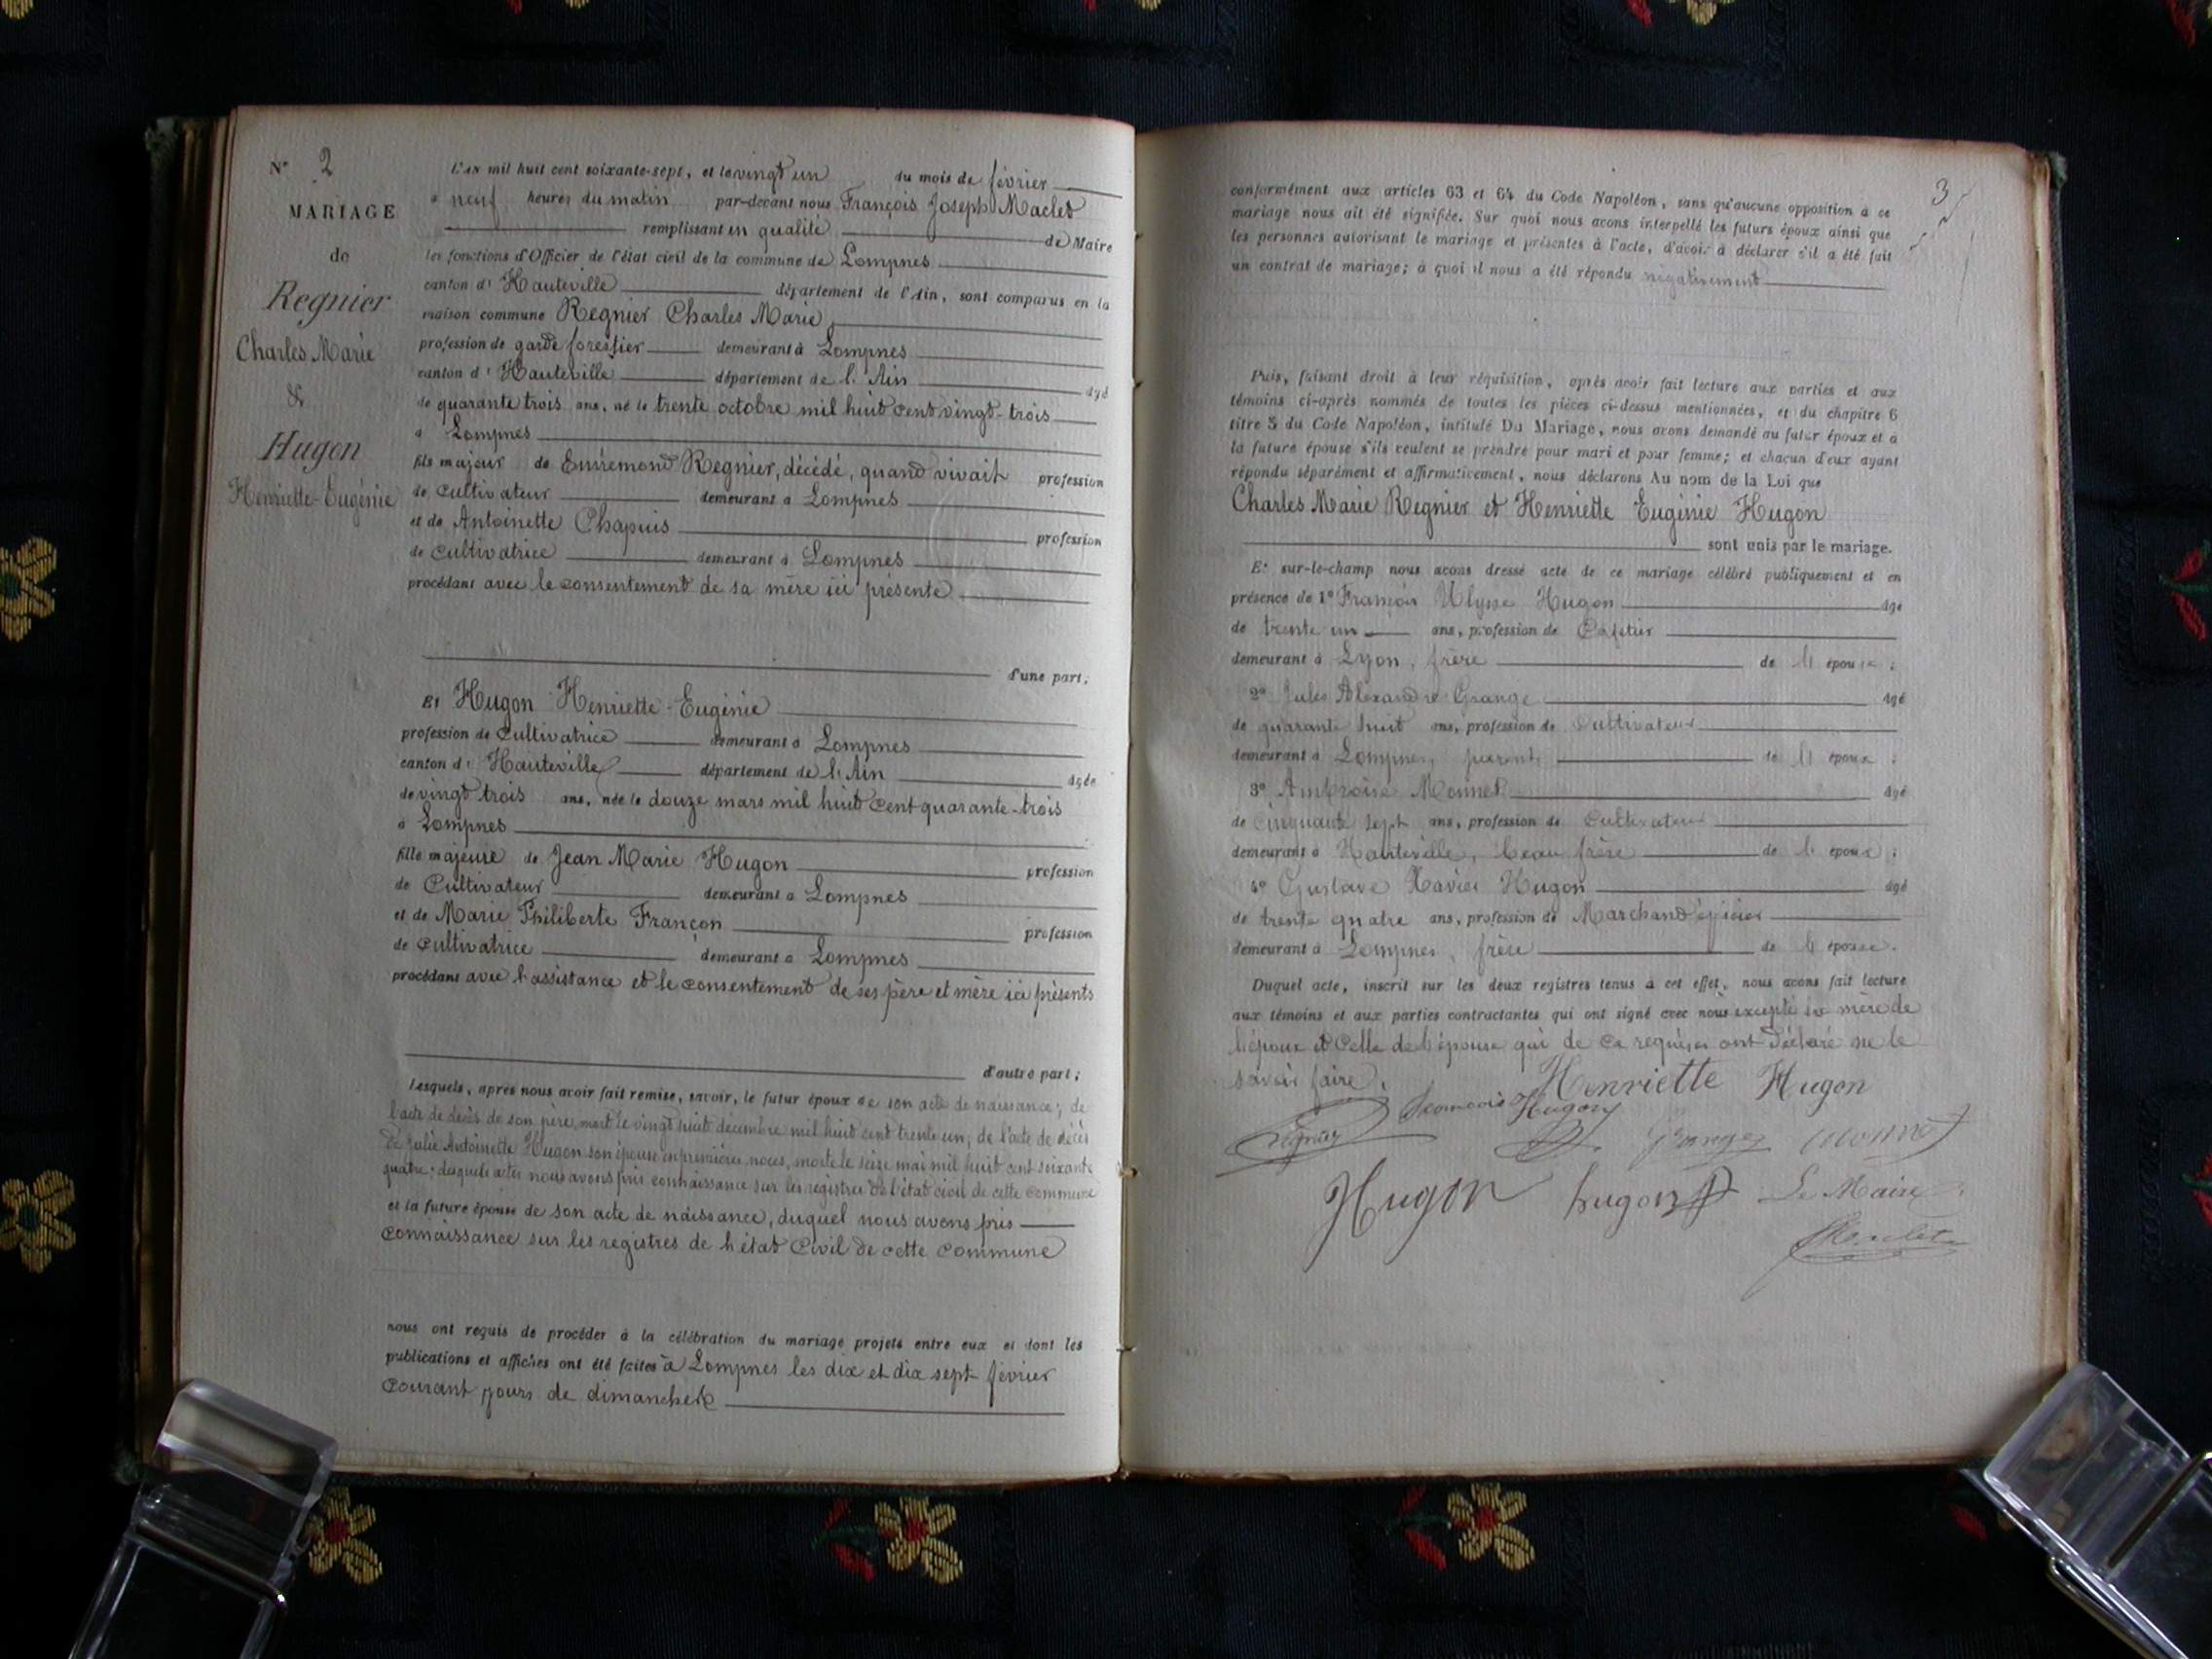 N° 2
MARIAGE
de
Regnier
Charles Marie
&
Hugon
Henriette-Eugénie
L'an mil huit cent soixante-sept, et le vingt un du mois de février
à neuf heures du matin par-devant nous François Joseph Maclet
remplissant en qualité de Maire
les fonctions d'Officier de l'état civil de la commune de Lompnes
canton d' Hauteville département de l'Ain, sont comparus en la
maison commune Regnier Charles Marie
profession de garde forestier demeurant à Lompnes
canton d' Hauteville département de l'Ain âgé
de quarante trois ans, né le trente octobre mil huit cent vingt-trois
à Lompnes
fils majeur de Enrémond Regnier, décédé, quand vivait profession
de cultivateur demeurant à Lompnes
et de Antoinette Chapuis profession
de cultivatrice demeurant à Lompnes
procédant avec le consentement de sa mère ici présente
d'une part;
Et Hugon Henriette-Eugénie
profession de Cultivatrice demeurant à Lompnes
canton d' Hauteville département de l'Ain âgée
de vingt trois ans, née le douze mars mil huit cent quarante-trois
à Lompnes
fille majeure de Jean Marie Hugon profession
de Cultivateur demeurant à Lompnes
et de Marie Philiberte Françon profession
de Cultivatrice demeurant à Lompnes
procédant avec l'assistance et le consentement de ses père et mère ici présents
d'autre part;
Lesquels, après nous avoir fait remise, savoir, le futur époux de son acte de naissance; de
l'acte de décès de son père, mort le vingt huit decembre mil huit cent trente un; de l'acte de décès
de Julie Antoinette Hugon son épouse en premières noces, morte le seize mai mil huit cent soixante
quatre; desquels actes nous avons pris connaissance sur les registres de l'état civil de cette commune
et la future épouse de son acte de naissance, duquel nous avons pris
connaissance sur les registres de l'état Civil de cette commune
nous ont requis de procéder à la célébration du mariage projeté entre eux et dont les
publications et affiches ont été faites à Lompnes les dix et dix sept février
courant jours de dimanche
3
conformément aux articles 63 et 64 du Code Napoléon, sans qu'aucune opposition à ce
mariage nous ait été signifiée. Sur quoi nous avons interpellé les futurs époux ainsi que
les personnes autorisant le mariage et présentes à l'acte, d'avoir à déclarer s'il a été fait
un contrat de mariage; à quoi il nous a été répondu négativement
Puis, faisant droit à leur réquisition, après avoir fait lecture aux parties et aux
témoins ci-après nommés de toutes les pièces ci-dessus mentionnées, et du chapitre 6
titre 5 du Code Napoléon, intitulé Du Mariage, nous avons demandé au futur époux et à
la future épouse s'ils veulent se prendre pour mari et pour femme; et chacun d'eux ayant
répondu séparément et affirmativement, nous déclarons Au nom de la Loi que
Charles Marie Regnier et Henriette Eugénie Hugon
sont unis par le mariage.
Et sur-le-champ nous avons dressé acte de ce mariage célébré publiquement et en
présence de 1° François Ulysse Hugon âgé
de trente un ans, profession de Cafetier
demeurant à Lyon, frère de l'épouse;
2° Jules Alexandre Grange âgé
de quarante huit ans, profession de Cultivateur
demeurant à Lompnes, parent de l'époux;
3° Ambroise Monnet âgé
de cinquante sept ans, profession de Cultivateur
demeurant à Hauteville, beau frère de l'époux;
4° Gustave Xavier Hugon âgé
de trente quatre ans, profession de Marchand épicier
demeurant à Lompnes, frère de l'épouse.
Duquel acte, inscrit sur les deux registres tenus à cet effet, nous avons fait lecture
aux témoins et aux parties contractantes qui ont signé avec nous excepté la mère de
l'époux et Celle de l'épouse qui de ce requises ont déclaré ne le
savoir faire.
Henriette Hugon
Regnier François Hugon Grange Monnet
Hugon hugon Le Maire
Maclet